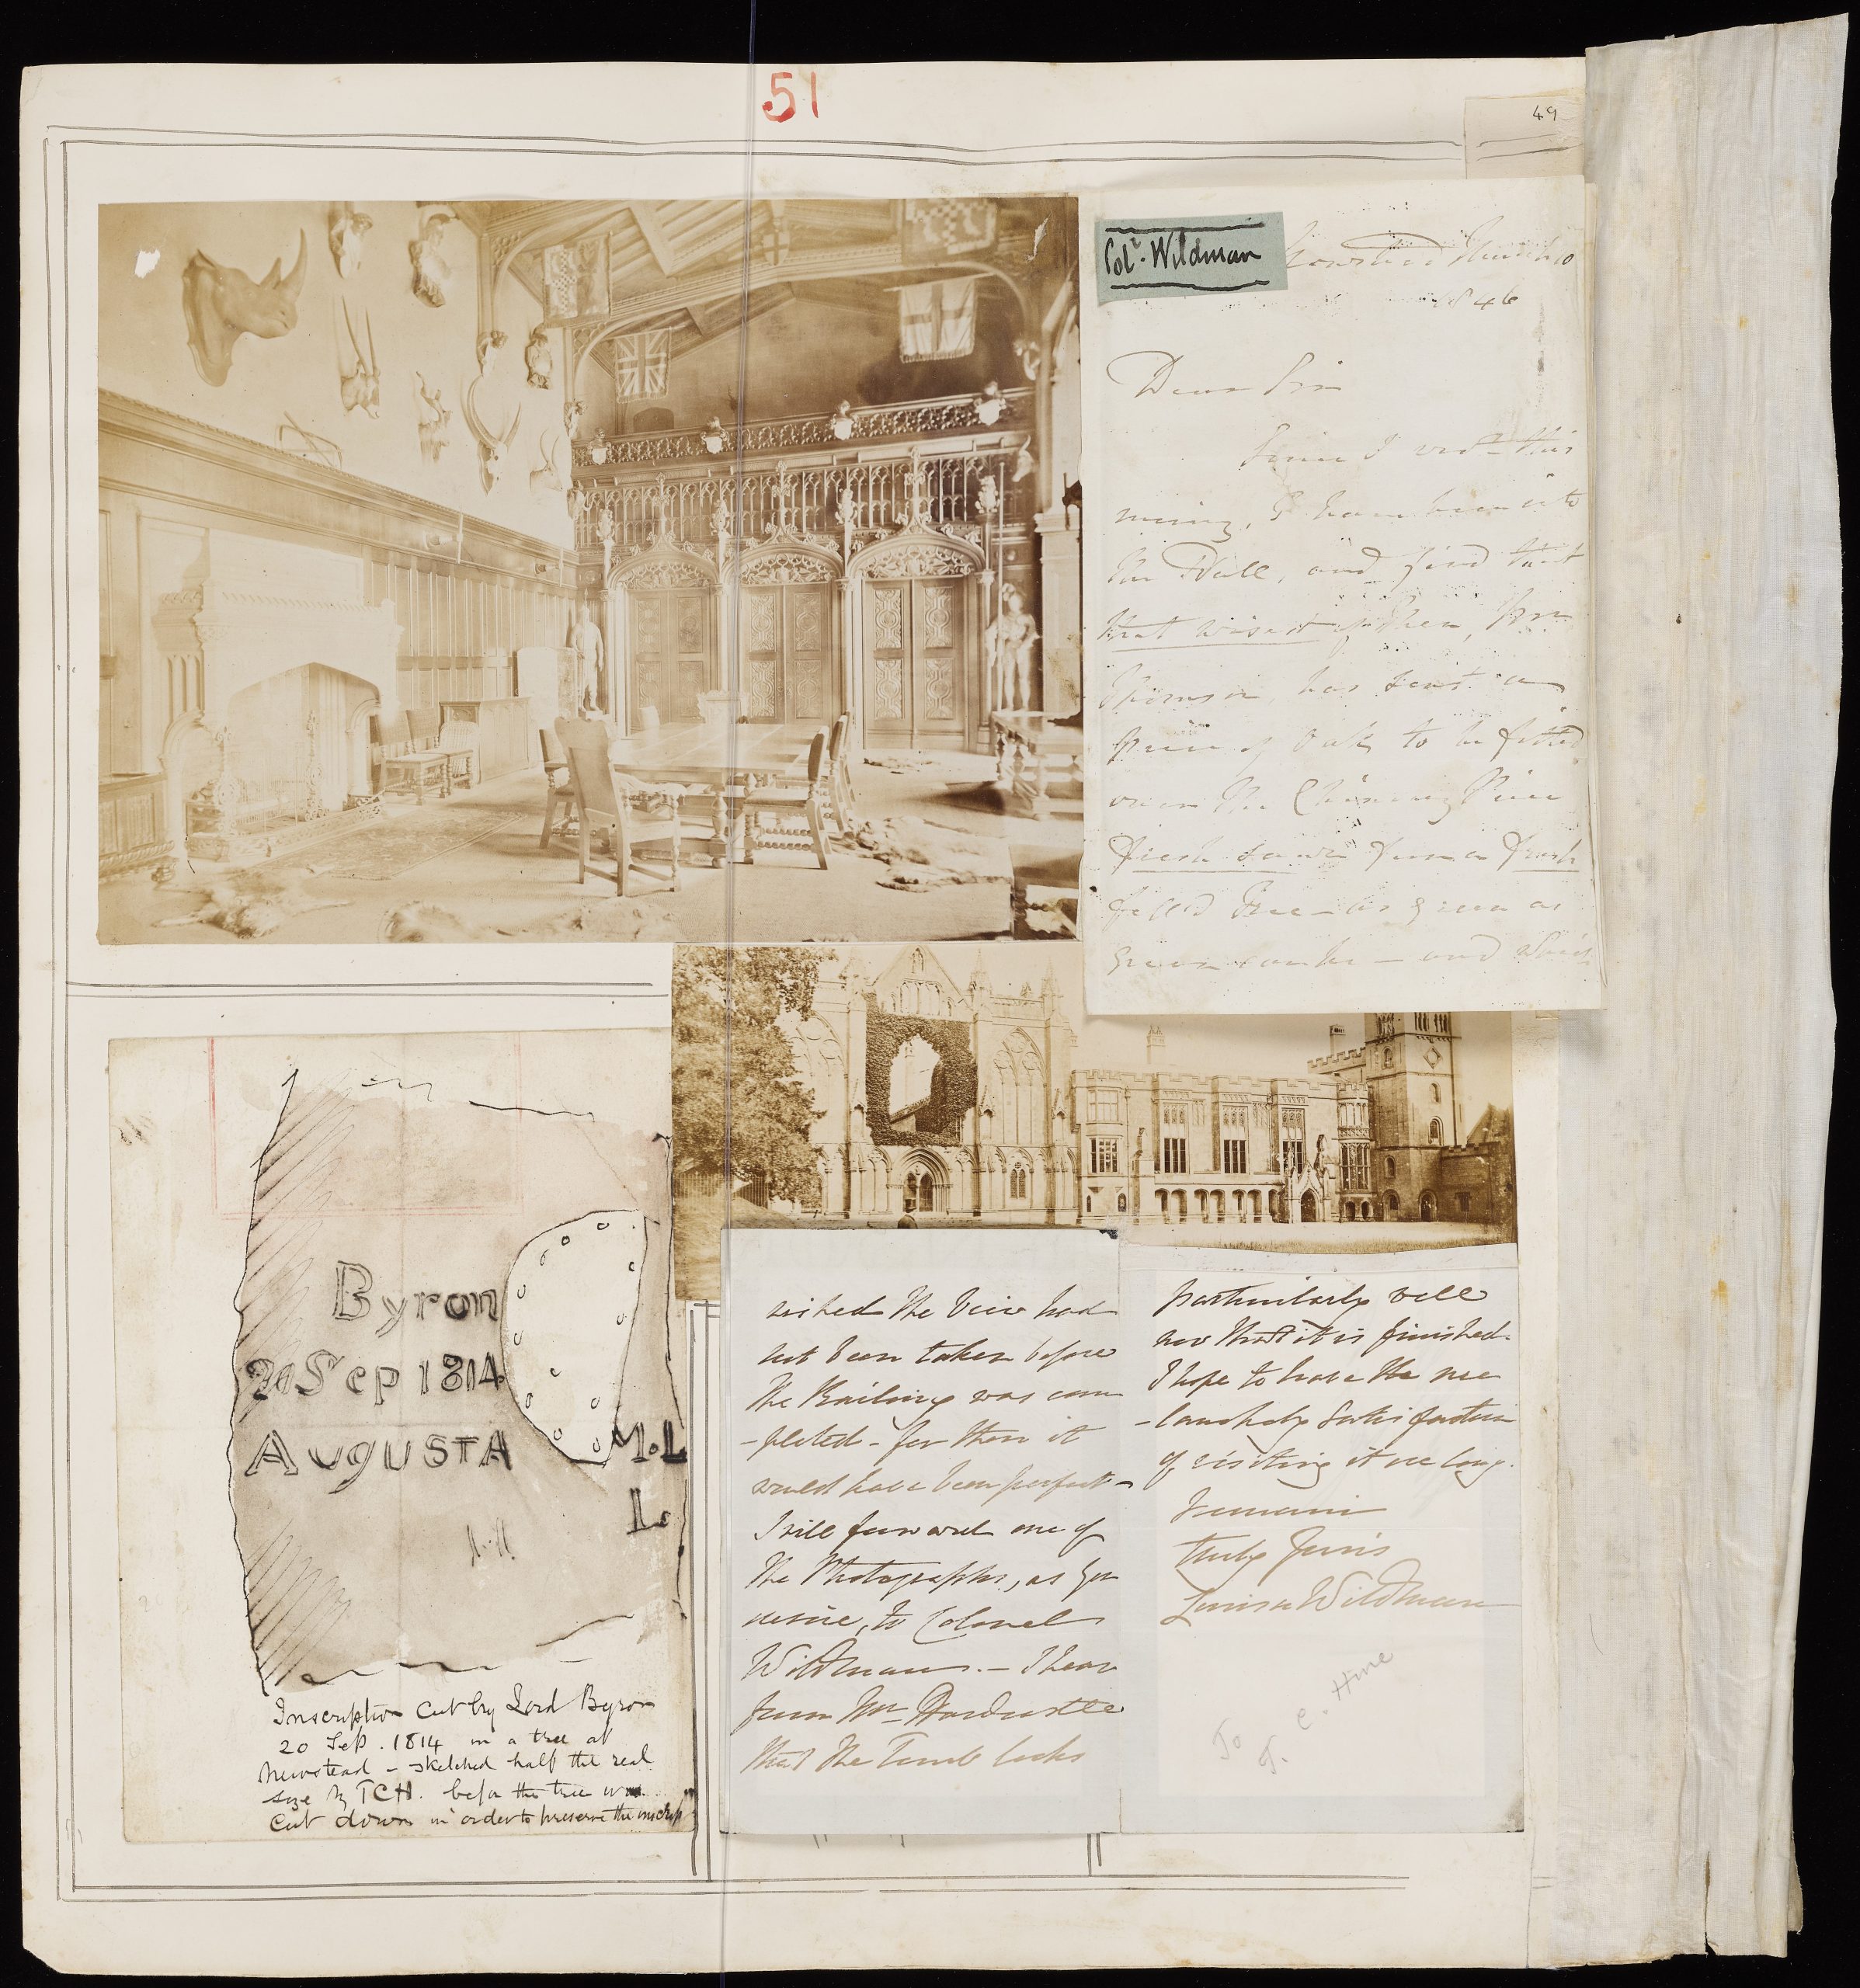 51
49
Colr. Wildman
Newstead March 10
1846
Dear Sir
Since I wrote this
morning, I have been into
the Hall, and find that
that wisest of Men, Mr
Thomson, has sent a
piece of Oak to be fitted
over the Chimney Piece
Fresh sawn from a fresh
felled Tree - as green as
green can be - and which
Byron
20 Sep 1814
AUGUSTA M.L
L.
Inscription cut by Lord Byron
20 Sep. 1814 in a tree at
Newstead - sketched half the real
size by TCH. before the tree was
cut down in order to preserve the inscrip
wished the View had
not been taken before
the Railing was com
-pleted - for then it
would have been perfect -
I will forward one of
the Photographs, as you
desire, to Colonel
Wildman. - I hear
from Mr Hardcastle
that the Tomb looks
particularly well
now that it is finished.
I hope to have the me
-lancholy satisfaction
of visiting it ere long.
I remain
truly Yours
Louisa Wildman
To
T. C. Hine